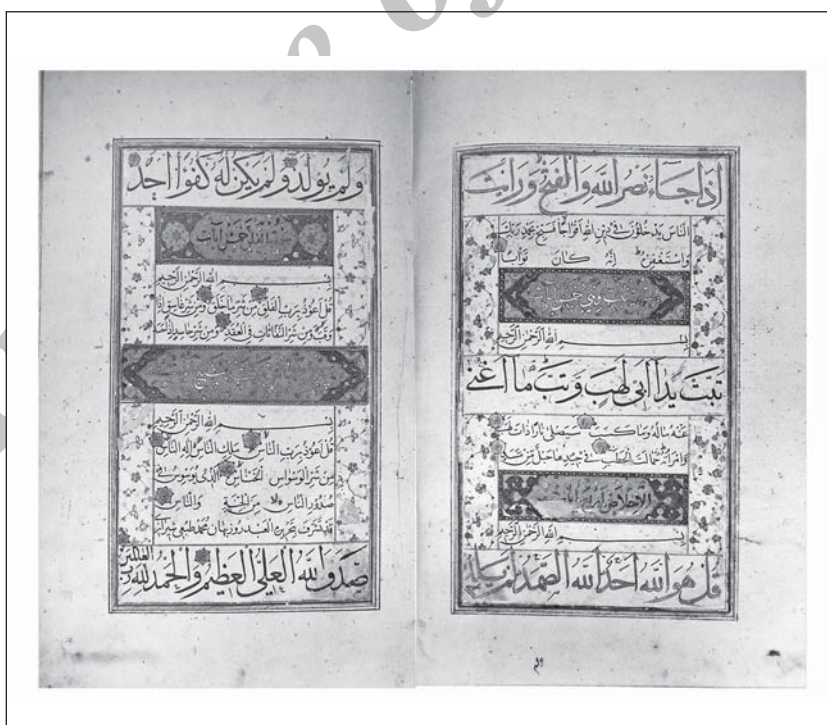 اِذَا جَاءَ نَصْرُ اللّٰهِ وَالْفَتْحُ وَرَاَيْتَ
النَّاسَ يَدْخُلُونَ فى دِينِ اللّٰهِ اَفْوَاجًا فَسَبِّحْ بِحَمْدِ رَبِّكَ
وَاسْتَغْفِرْهُ اِنَّهُ كَانَ تَوَّابًا
تبت وهي خمس آيات
بِسْمِ اللّٰهِ الرَّحْمٰنِ الرَّحِيمِ
تَبَّتْ يَدَا اَبى لَهَبٍ وَتَبَّ مَا اَغْنٰى
عَنْهُ مَالُهُ وَمَا كَسَبَ سَيَصْلٰى نَارًا ذَاتَ لَهَبٍ
وَامْرَاَتُهُ حَمَّالَةَ الْحَطَبِ فى جِيدِهَا حَبْلٌ مِنْ مَسَدٍ
الاخلاص اربع آيات
بِسْمِ اللّٰهِ الرَّحْمٰنِ الرَّحِيمِ
قُلْ هُوَ اللّٰهُ اَحَدٌ اَللّٰهُ الصَّمَدُ لَمْ يَلِدْ
وَلَمْ يُولَدْ وَلَمْ يَكُنْ لَهُ كُفُوًا اَحَدٌ
خمس آيات
بِسْمِ اللّٰهِ الرَّحْمٰنِ الرَّحِيمِ
قُلْ اَعُوذُ بِرَبِّ الْفَلَقِ مِنْ شَرِّ مَا خَلَقَ وَمِنْ شَرِّ غَاسِقٍ اِذَا
وَقَبَ وَمِنْ شَرِّ النَّفَّاثَاتِ فِى الْعُقَدِ وَمِنْ شَرِّ حَاسِدٍ اِذَا حَسَدَ
بِسْمِ اللّٰهِ الرَّحْمٰنِ الرَّحِيمِ
قُلْ اَعُوذُ بِرَبِّ النَّاسِ مَلِكِ النَّاسِ اِلٰهِ النَّاسِ
مِنْ شَرِّ الْوَسْوَاسِ الْخَنَّاسِ اَلَّذِى يُوَسْوِسُ فى
صُدُورِ النَّاسِ مِنَ الْجِنَّةِ وَالنَّاسِ
العبد روزبهان محمد
صَدَقَ اللّٰهُ الْعَلِىُّ الْعَظِيمُ وَالْحَمْدُ لِلّٰهِ رب العالمين